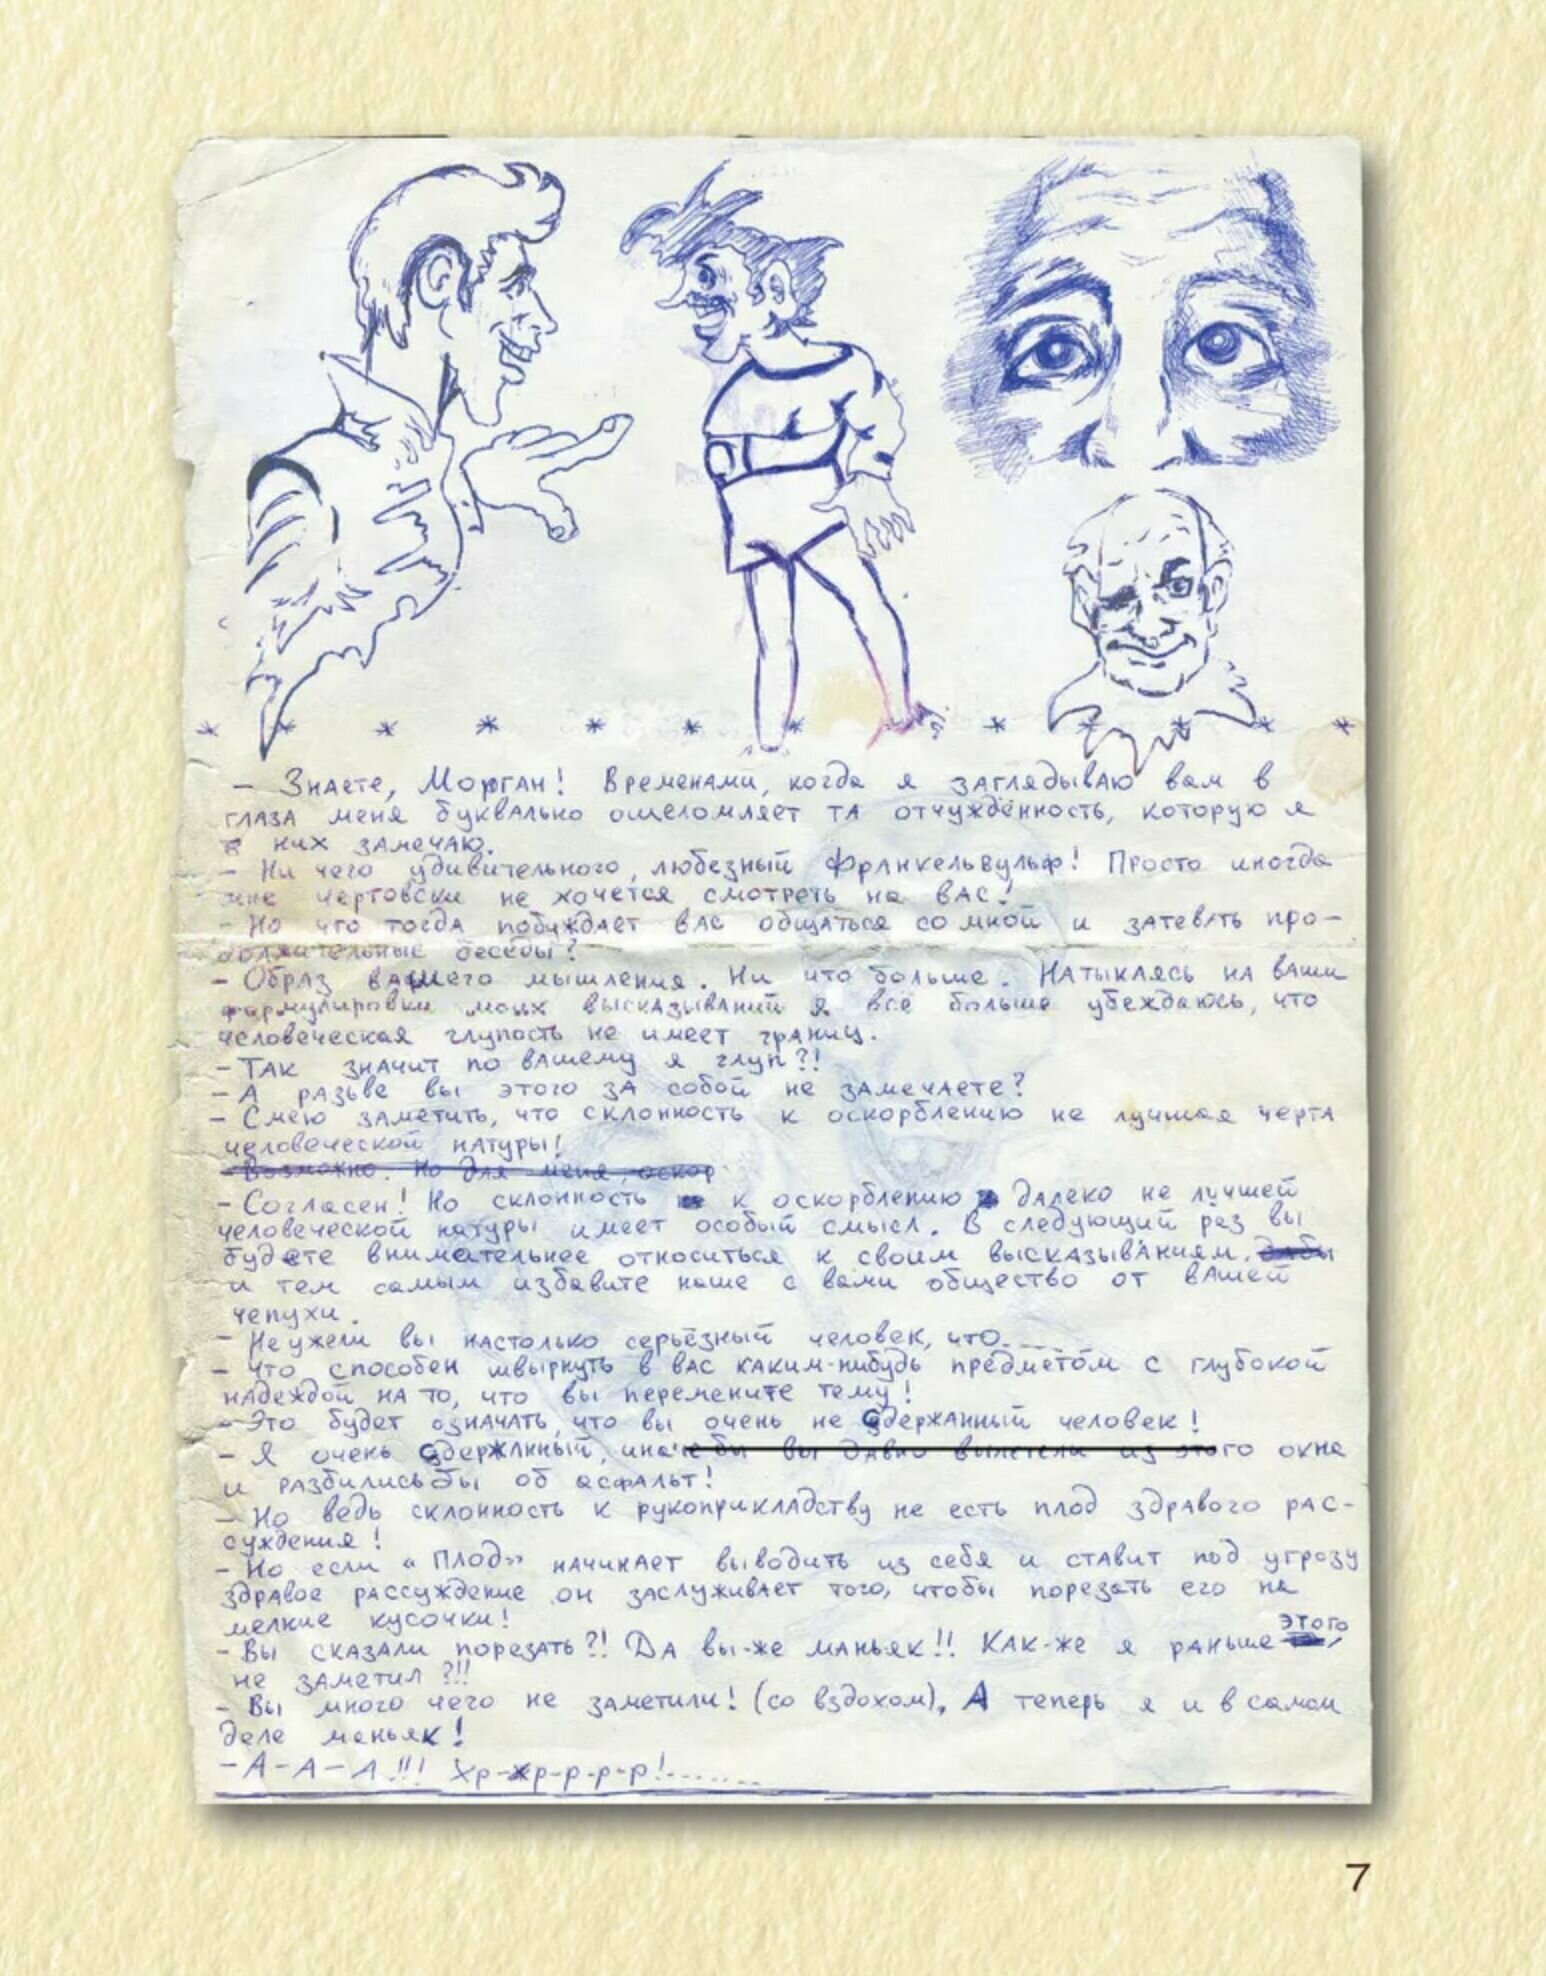 * * * * * * * * * * * *
– Знаете, Морган! Временами, когда я заглядываю вам в
глаза меня буквально ошеломляет та отчуждённость, которую я
в них замечаю.
– Ни чего удивительного, любезный Франкельвульф! Просто иногда
мне чертовски не хочется смотреть на вас!
– Но что тогда побуждает вас общаться со мной и затевать про-
должительные беседы?
– Образ вашего мышления. Ни что больше. Натыкаясь на ваши
формулировки моих высказываний я всё больше убеждаюсь, что
человеческая глупость не имеет границ.
– Так значит по вашему я глуп?!
– А разьве вы этого за собой не замечаете?
– Смею заметить, что склонность к оскорблению не лучшая черта
человеческой натуры!
– Возможно. Но для меня, оскор
– Согласен! Но склонность к оскорблению далеко не лучшей
человеческой натуры имеет особый смысл. В следующий раз вы
будете внимательнее относиться к своим высказываниям. дабы
и тем самым избавите наше с вами общество от вашей
чепухи.
– Неужели вы настолько серьёзный человек, что.....
– Что способен швырнуть в вас каким-нибудь предметом с глубокой
надеждой на то, что вы перемените тему!
– Это будет означать, что вы очень не сдержанный человек!
– Я очень сдержанный, иначе бы вы давно вылетели из этого окна
и разбились бы об асфальт!
– Но ведь склонность к рукоприкладству не есть плод здравого рас-
суждения!
– Но если «плод» начинает выводить из себя и ставит под угрозу
здравое рассуждение он заслуживает того, чтобы порезать его на
мелкие кусочки!
– Вы сказали порезать?! Да вы-же маньяк!! Как-же я раньше этого
не заметил?!!
– Вы много чего не заметили! (со вздохом). А теперь я и в самом
деле маньяк!
– А-А-А!!! Хр-хр-р-р-р!.......
7